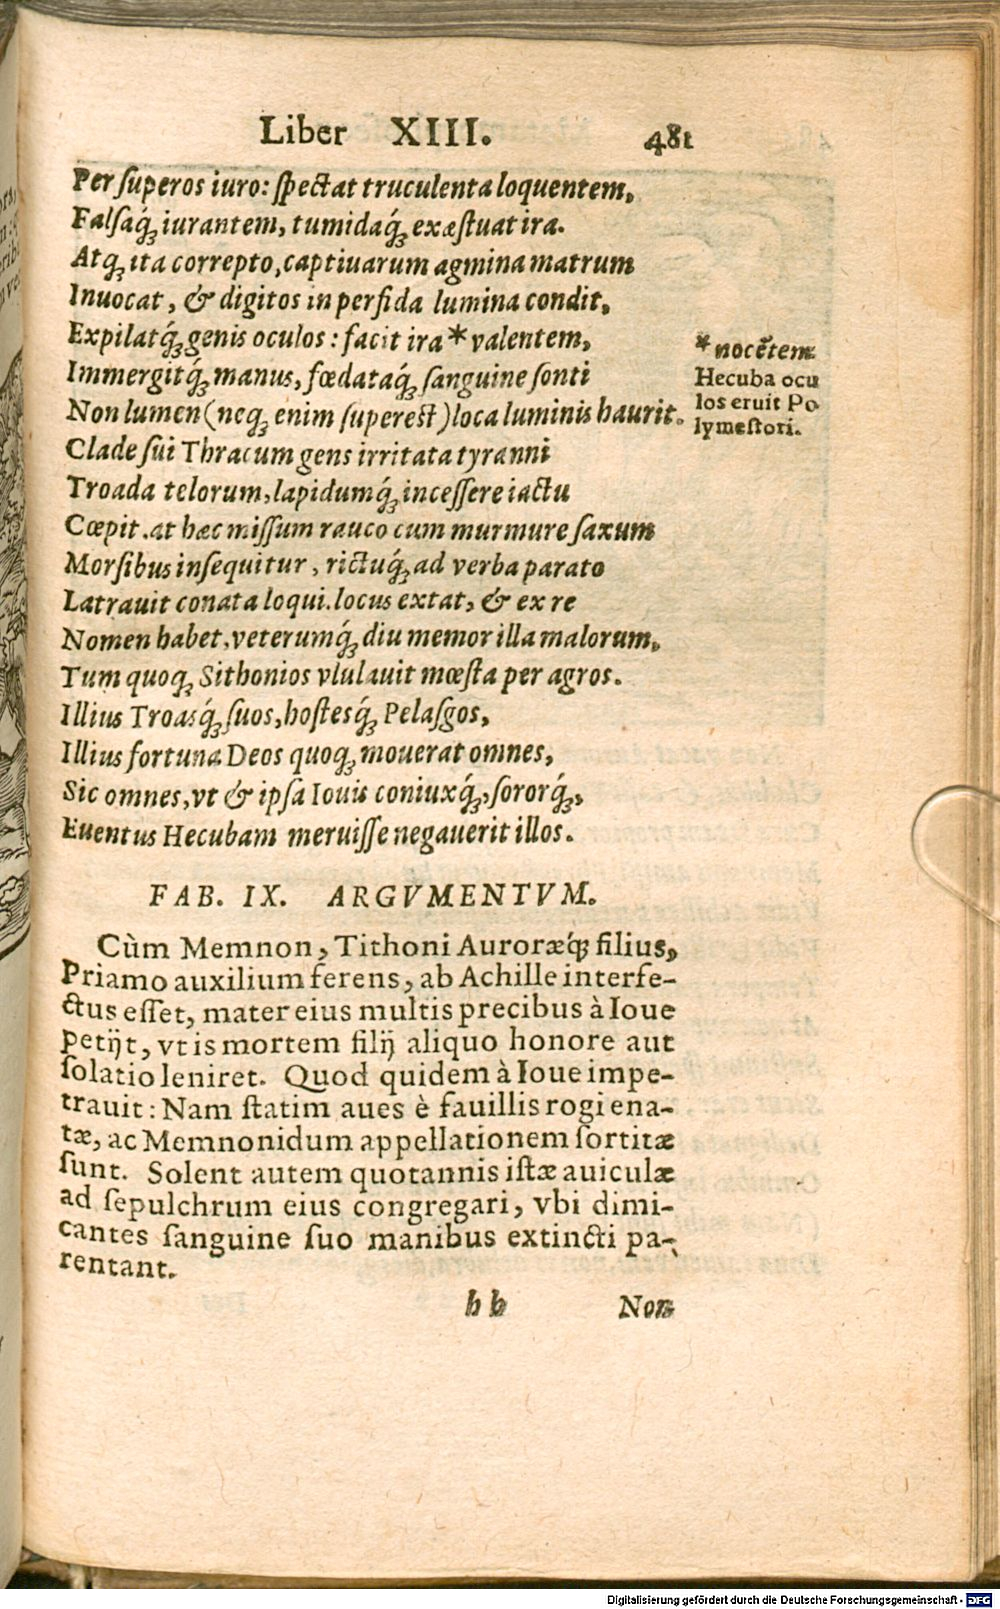 Liber XIII. 481
Per ſuperos iuro: ſpectat truculenta loquentem,
Falſaq́ꝫ iurantem, tumidaq́ꝫ exæſtuat ira.
Atqꝫ ita correpto, captiuarum agmina matrum
Inuocat, & digitos in perfida lumina condit,
Expilatq́ꝫ genis oculos: facit ira * valentem,
Immergitq́ꝫ manus, fœdataq́ꝫ ſanguine ſonti
Non lumen (neqꝫ enim ſupereſt) loca luminis haurit.
Clade ſui Thracum gens irritata tyranni
Troada telorum, lapidumq́ꝫ inceſſere iactu
Cœpit. at hæc miſſum rauco cum murmure ſaxum
Morſibus inſequitur, rictuq́ꝫ ad verba parato
Latrauit conata loqui. locus extat, & ex re
Nomen habet, veterumq́ꝫ diu memor illa malorum,
Tum quoqꝫ Sithonios vlulauit mœſta per agros.
Illius Troasq́ꝫ ſuos, hoſtesq́ꝫ Pelaſgos,
Illius fortuna Deos quoqꝫ mouerat omnes,
Sic omnes, vt & ipſa Iouis coniuxq́ꝫ, ſororq́ꝫ,
Euentus Hecubam meruiſſe negauerit illos.
* nocẽtem
Hecuba ocu
los eruit Po
lymeſtori.
FAB. IX. ARGVMENTVM.
Cùm Memnon, Tithoni Auroræq́ꝫ filius,
Priamo auxilium ferens, ab Achille interfe-
ctus eſſet, mater eius multis precibus à Ioue
petijt, vt is mortem filij aliquo honore aut
ſolatio leniret. Quod quidem à Ioue impe-
trauit: Nam ſtatim aues è fauillis rogi ena-
tæ, ac Memnonidum appellationem ſortitæ
ſunt. Solent autem quotannis iſtæ auiculæ
ad ſepulchrum eius congregari, vbi dimi-
cantes ſanguine ſuo manibus extincti pa-
rentant.
hh Non
Digitalisierung gefördert durch die Deutsche Forschungsgemeinschaft - DFG